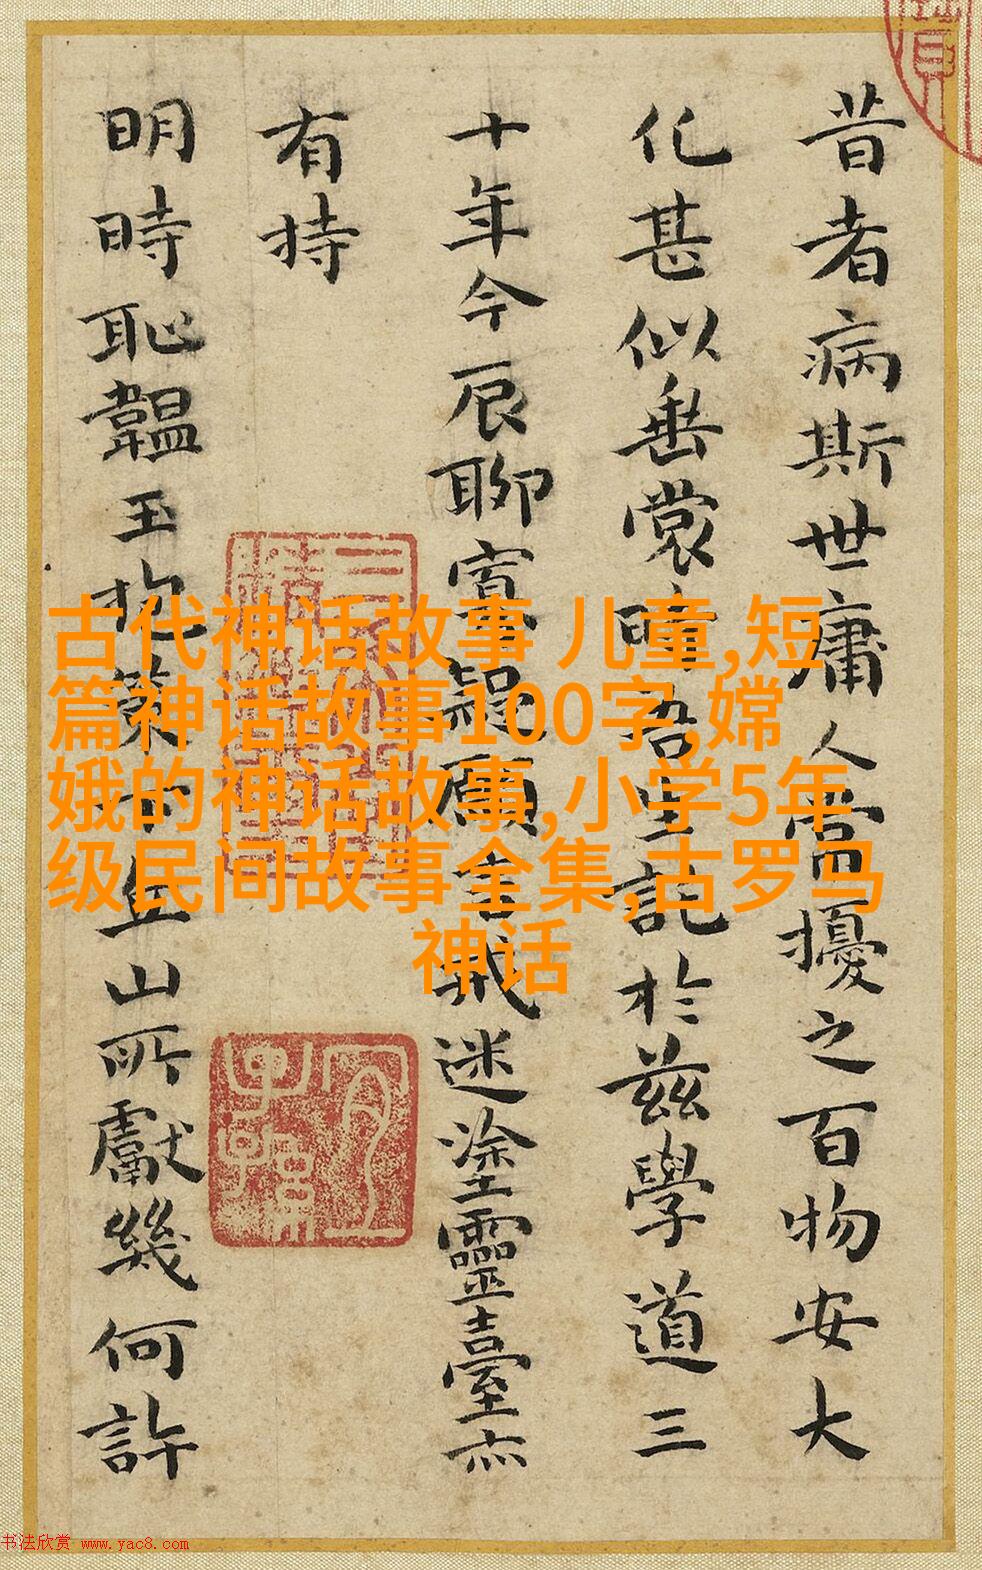 昔者病斯世庸人常擾之百物安大
化甚似垂裳時吾生託於茲學道三
十年今辰聊寘疑願言我迷塗靈臺亦
有持
明時恥韞玉抱策丘山所獻幾何許
古代神话故事 儿童,短
篇神话故事100字,嫦
娥的神话故事,小学5年
级民间故事全集,古罗马
神话
书法欣赏 www.yac8.com